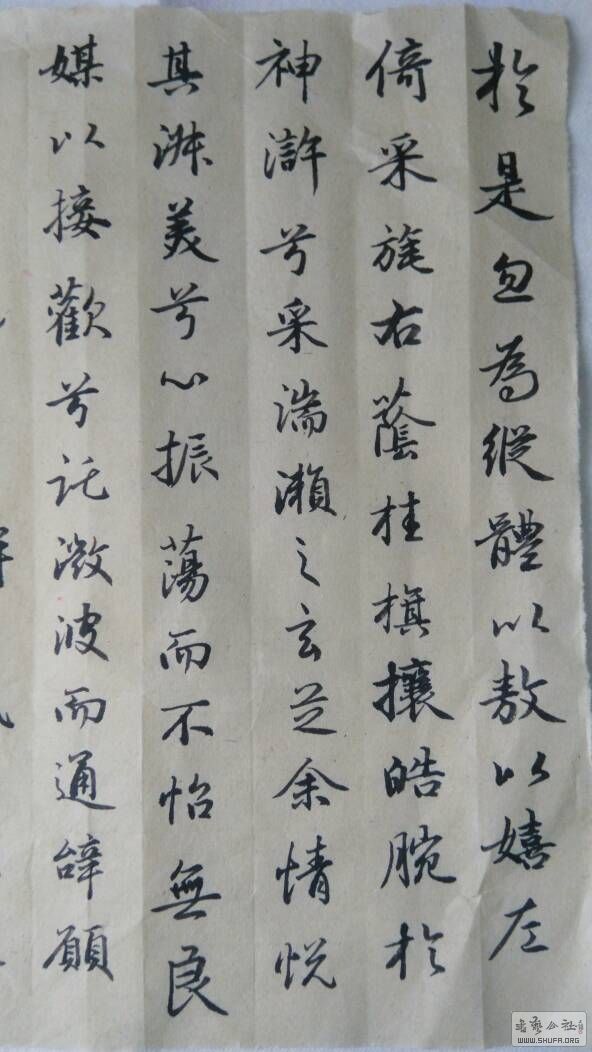 於是忽為縱體以敖以嬉左
倚采旄右蔭桂旗攘皓腕於
神滸兮采湍瀨之玄芝余情悅
其淑美兮心振蕩而不怡無良
媒以接歡兮託微波而通辭願
WWW.SHUFA.ORG